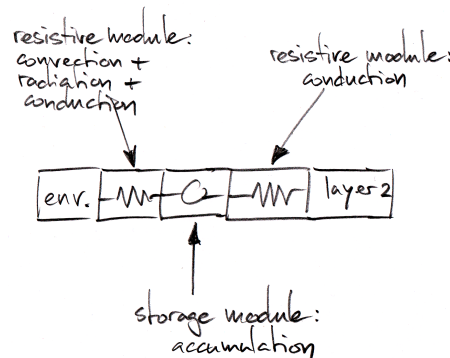 resistive module:
convection +
radiation +
conduction
resistive module:
conduction
env.
C
layer 2
storage module:
accumulation